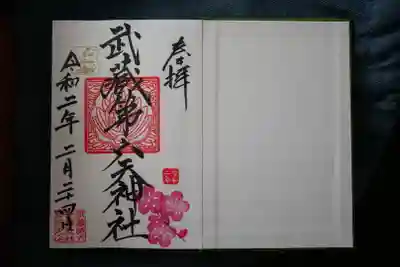 奉拝
武蔵第六天神社
令和二年 二月二十四日